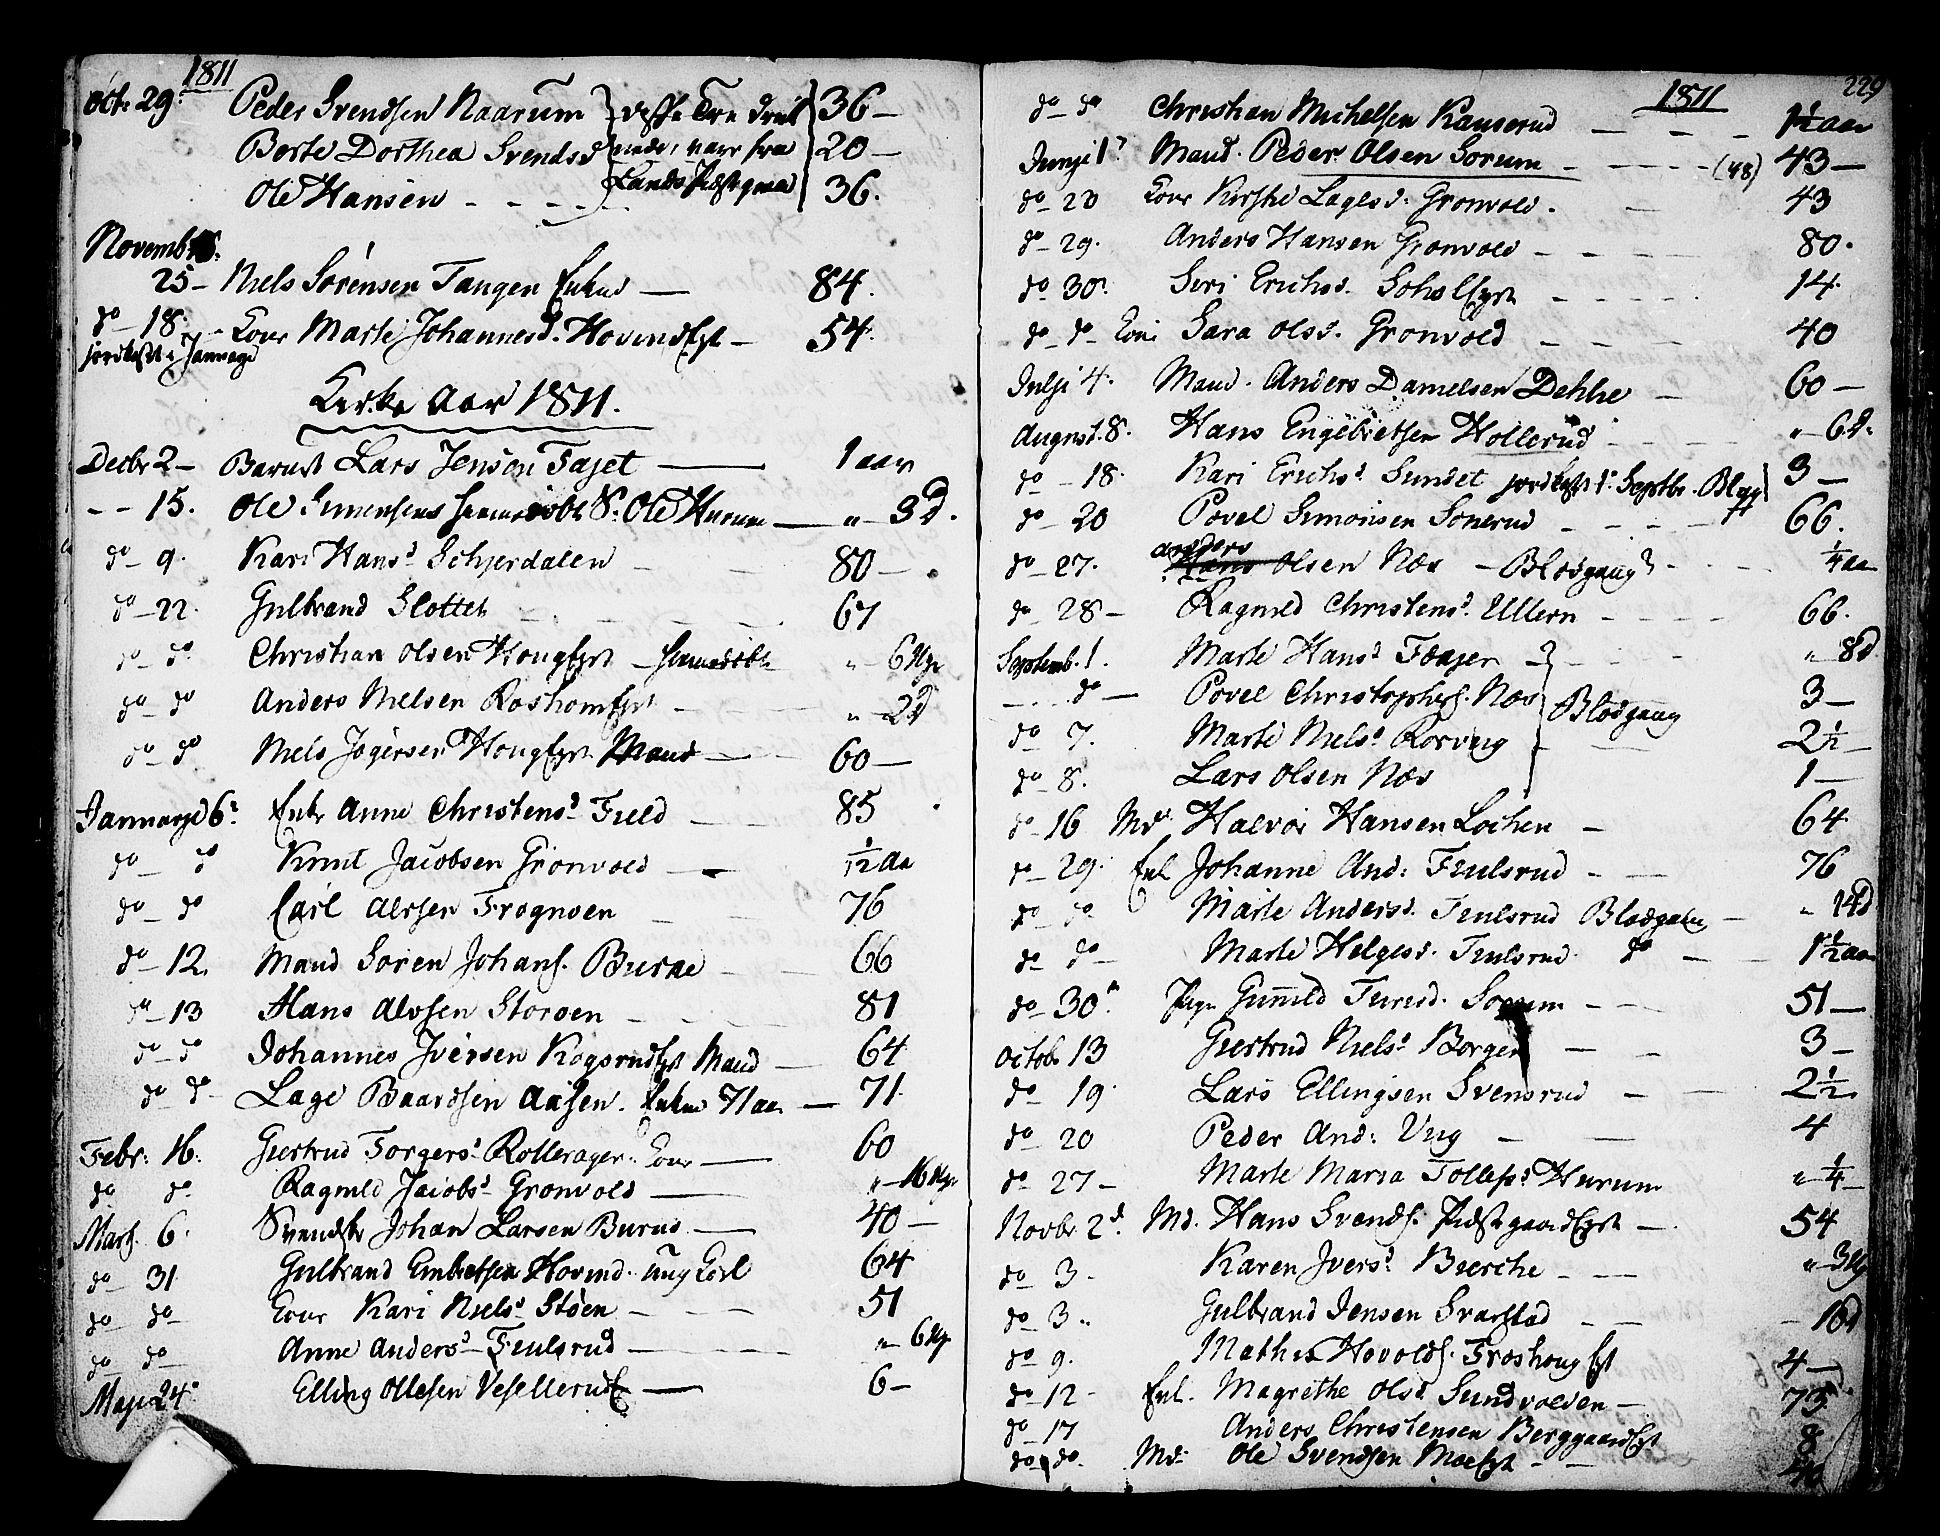 1811
Octr 29. Peder Svendsen Naarum disse Tre 36 –
Berte Dorthea Svendsd 20 –
Ole Hansen – – – – 36.
Novembr
25 – Niels Sörensen Tangen Enkmd — 84.
do – 18. Kone Marte Johannesd. Hovindeyet – 54.
jordkast i Januari
Kirke Aar 1811.
Decbr 2 – Barnet Lars Jensen Fajet — 1 aar
– – 15. Ole Simensens hiemdöbt S. Ole Hurum — „ – 3 d.
do – 9. Kari Hansd Schjerdalen – – 80 –
do – 22. Gulbrand Slottet – – – 67
do – do Christian Olsen Hougeyet – hiemdöbt „ – 6 Uger
do – do Anders Nielsen Roshomeyet – – „ – 2 d
do – do Niels Jögersen Hougeyet Mand – – 60 –
Januarji 6. Enke Anne Christensd Field – – 85
do do Knut Jacobsen Grönvold – – 1/12 Aa
do – do Carl Alvsen Frognöen – – 76
do – 12. Mand Sören Johans. Buraae – – 66
do – 13 Hans Alvsen Storöen – – 81
do – do Johannes Iversen Kogsrudeyet Mand – 64
do – do – Lage Baardsen Aasen. Enkm 71 aar — 71.
Febr: 16. Giertrud Torgersd Rolleragen. Kone — 60
do do Ragnild Jacobsd Grönvold — „ – 16 Uger
Marts 6. Svendsk Johan Larsen Burud — 40 –
do – 31 Gulbrand Embretsen Hovind. ung Karl 64
do – do – Kone Kari Nielsd Stöen – – 51
do – do – Anne Andersd Fiulsrud — „ – 6 Ug.
Maji 24. Elling Ollesen Vesellerud — 6 –
229
1811
do – do Christian Michelsen Kauserud – – – 1½ aar
Junji 1. Mand. Peder Olsen Sorum – – – – (48) 43 –
do – 23 Kone Kirstie Lagesd. Grönvold. – 43
do – 29. Anders Hansen Grönvold – – – – 80.
do – 30. Siri Erichsd. – – – – 14.
do – do – Kone Sara Olsd. Grönvold – – – 40
Julji 4. Mand. Anders Danielsen Dehlie – 60 –
August. 8. Hans Engebretsen Hollerud – – – „ 6 d.
do – 18. Kari Erichsd Sundet jordkast 1. Septbr. Blgg 3 –
do – 20 Povel Simonsen Sönerud – – – – 66.
do – 27. Anders Olsen Næs – Blodgang – – – ¼ aa
do – 28 – Ragnild Christensd. Ullern – – – 66.
Septemb. 1. Marte Hansd Fæger – – – „ 8 d
– – do – Povel Christophers. Næs 3 –
Blodgang
do – 7. Marte Nielsd Rörvig – – 2½ –
do – 8. Lars Olsen Næs 1 –
do – 16 Md. Halvor Hansen Lochen – 64
do – 29. Enk Johanne And: Fiulsrud – – 76
do – do – Marte Andersd. Fiulsrud Blodgang – „ 14 d
do – do – Marte Helgesd. Fiulsrud do – – 1½ aa
do – 30. Pige Gunnild Turesd. Sorum – – 51 –
Octob. 13 Giertrud Nielsd Borgen – – 3 –
do 19 Lars Ellingsen Svensrud – – 2½
do – 20 Peder And: Vug – – 4
do – 27 – Marte Maria Tollefsd Hurum „ ¼ –
Novbr 2d Md. Hans Svends. Præstgaardeyet – 54
do – 3 – Karen Iversd Bierche – – „ 3 Ug
do – 3 „ Gulbrand Jensen Svarstad – – – 16 d
do – 9. Mathis Hovolds. Froshougeyet 4 –
do – 12 – Enk. Magrethe Olsd Sundvolden – 73.
do – 17 Anders Christensen Berggaardeyet 8
do – do. Md. Ole Svendsen Moeeyet – –